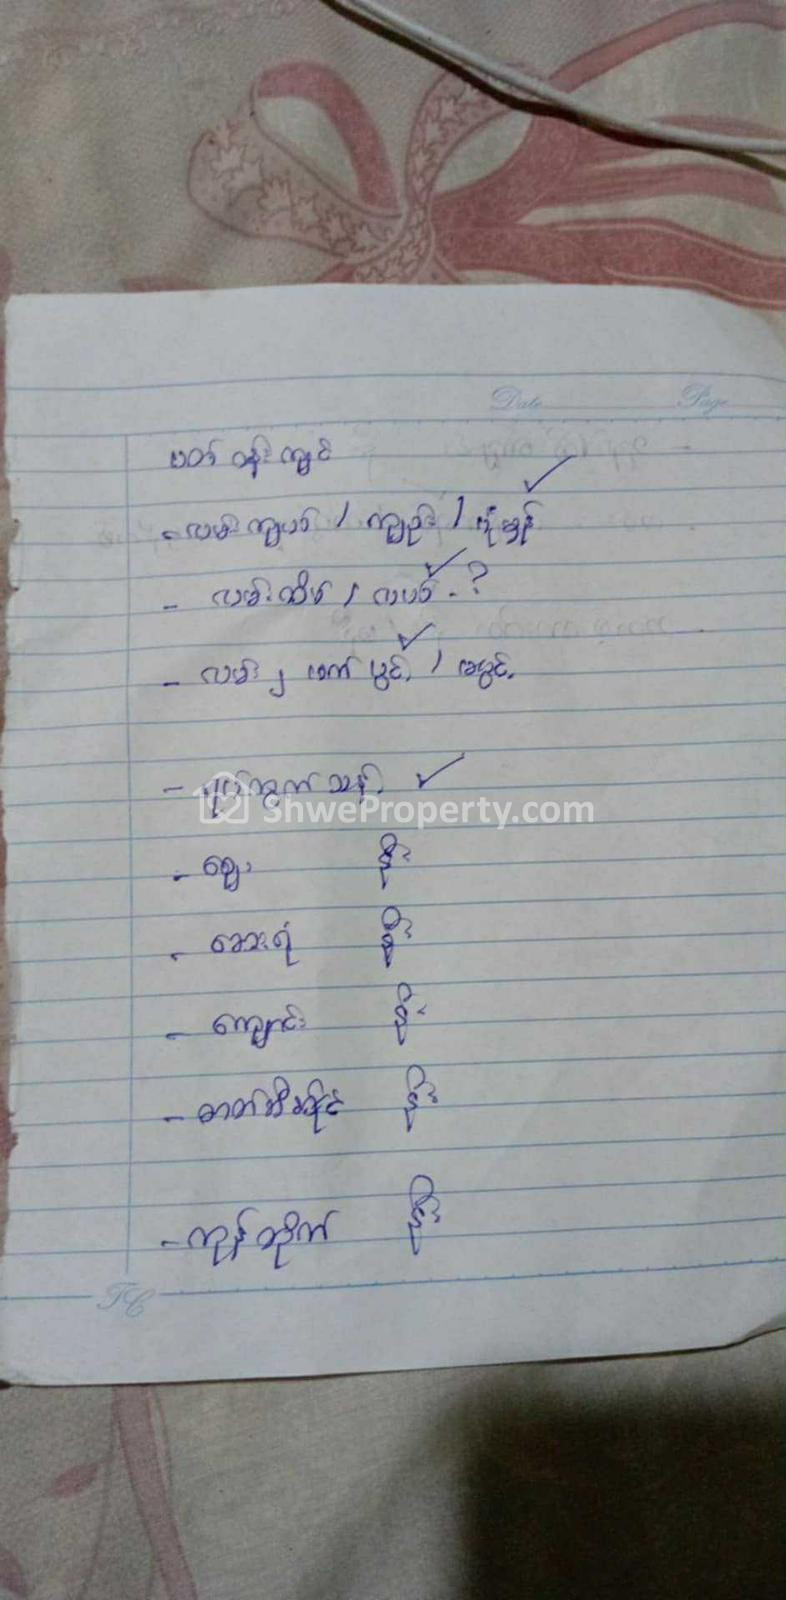 Date Page
ပတ်ဝန်းကျင်
- လမ်းကျယ် / ကျဉ်း / ပုံမှန် ✓
- လမ်းထိပ် / လယ် ✓ - ?
- လမ်း ၂ ဖက်ပွင့် ✓ / မပွင့်
- ရပ်ကွက်သန့် ✓
ShweProperty.com
- ဈေး နီး
- ဆေးရုံ နီး
- ကျောင်း နီး
- ဓာတ်ဆီဆိုင် နီး
- ကုန်တိုက် နီး
TC